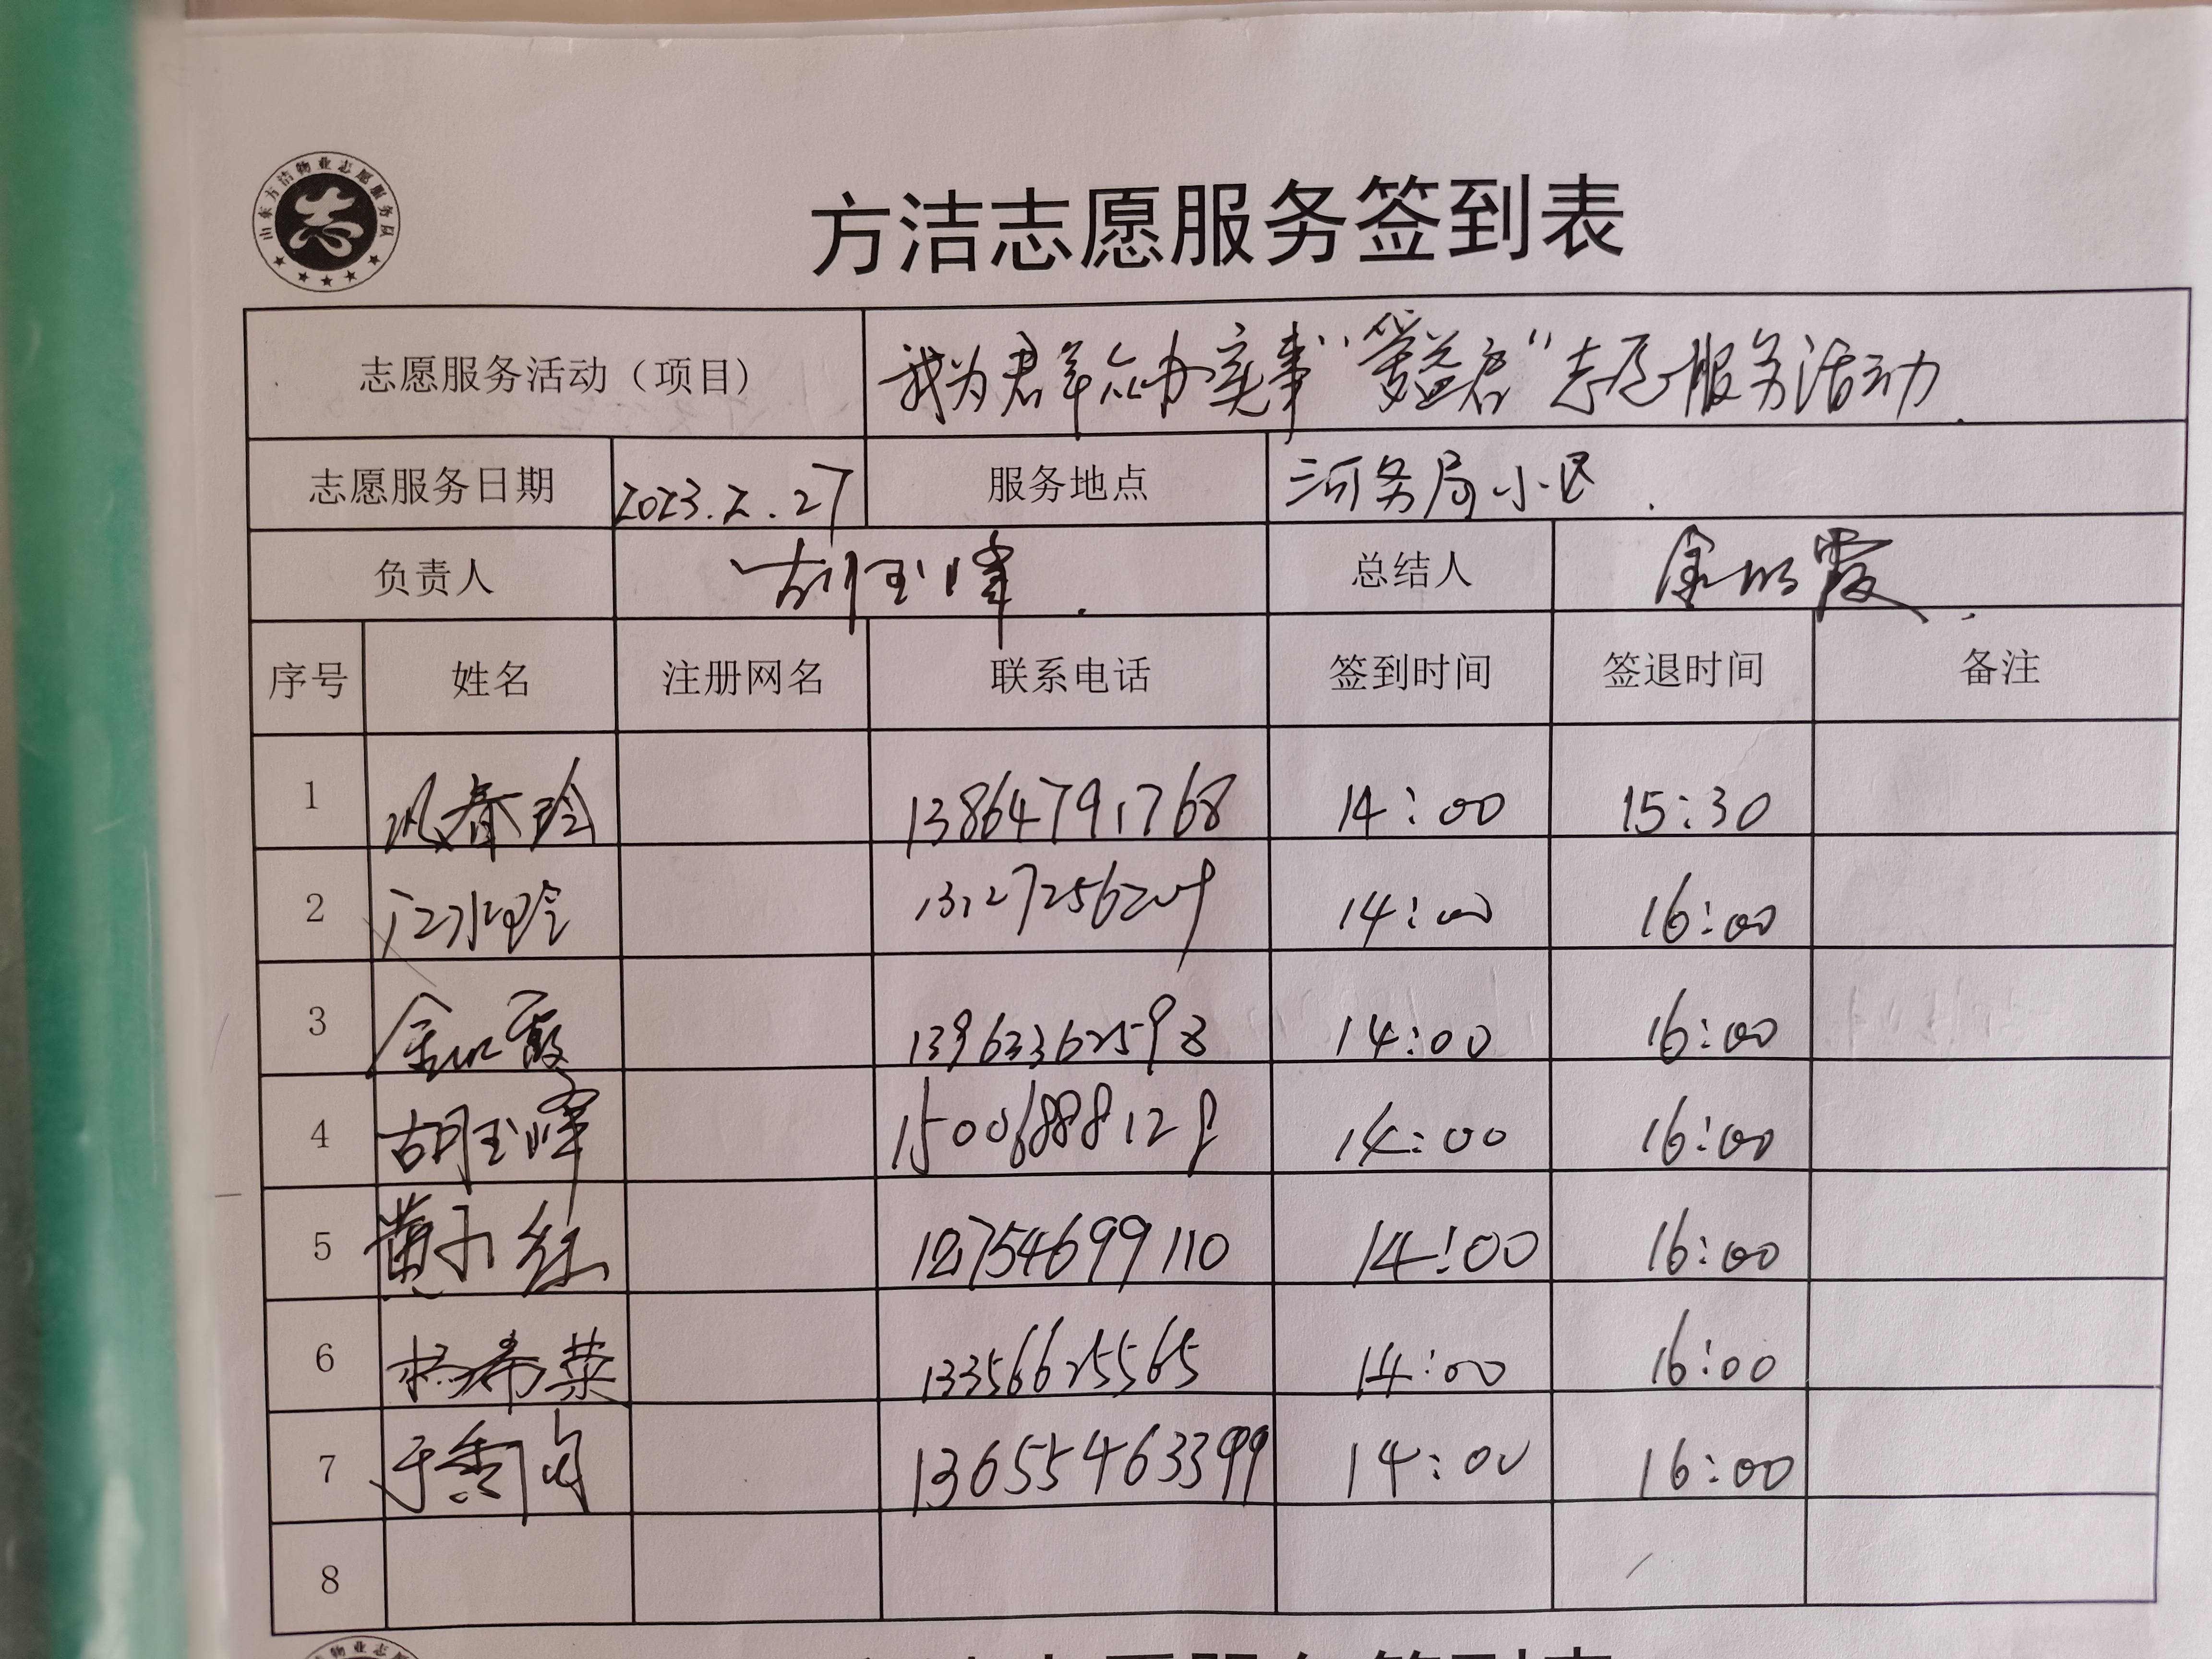 山东方洁物业志愿服务队
志
方洁志愿服务签到表
志愿服务活动（项目） 我为君羊众办实事“爱益君”志愿服务活动.
志愿服务日期 2023.2.27 服务地点 河务局小区.
负责人 胡玉峰. 总结人 金红霞.
序号 姓名 注册网名 联系电话 签到时间 签退时间 备注
1 春玲 13864791768 14:00 15:30
2 江水玲 14:00 16:00
3 金红霞 13963362598 14:00 16:00
4 胡玉峰 15006888129 14:00 16:00
5 黄小红 14:00 16:00
6 杨希荣 13356625565 14:00 16:00
7 于香 13655463399 14:00 16:00
8
物业志